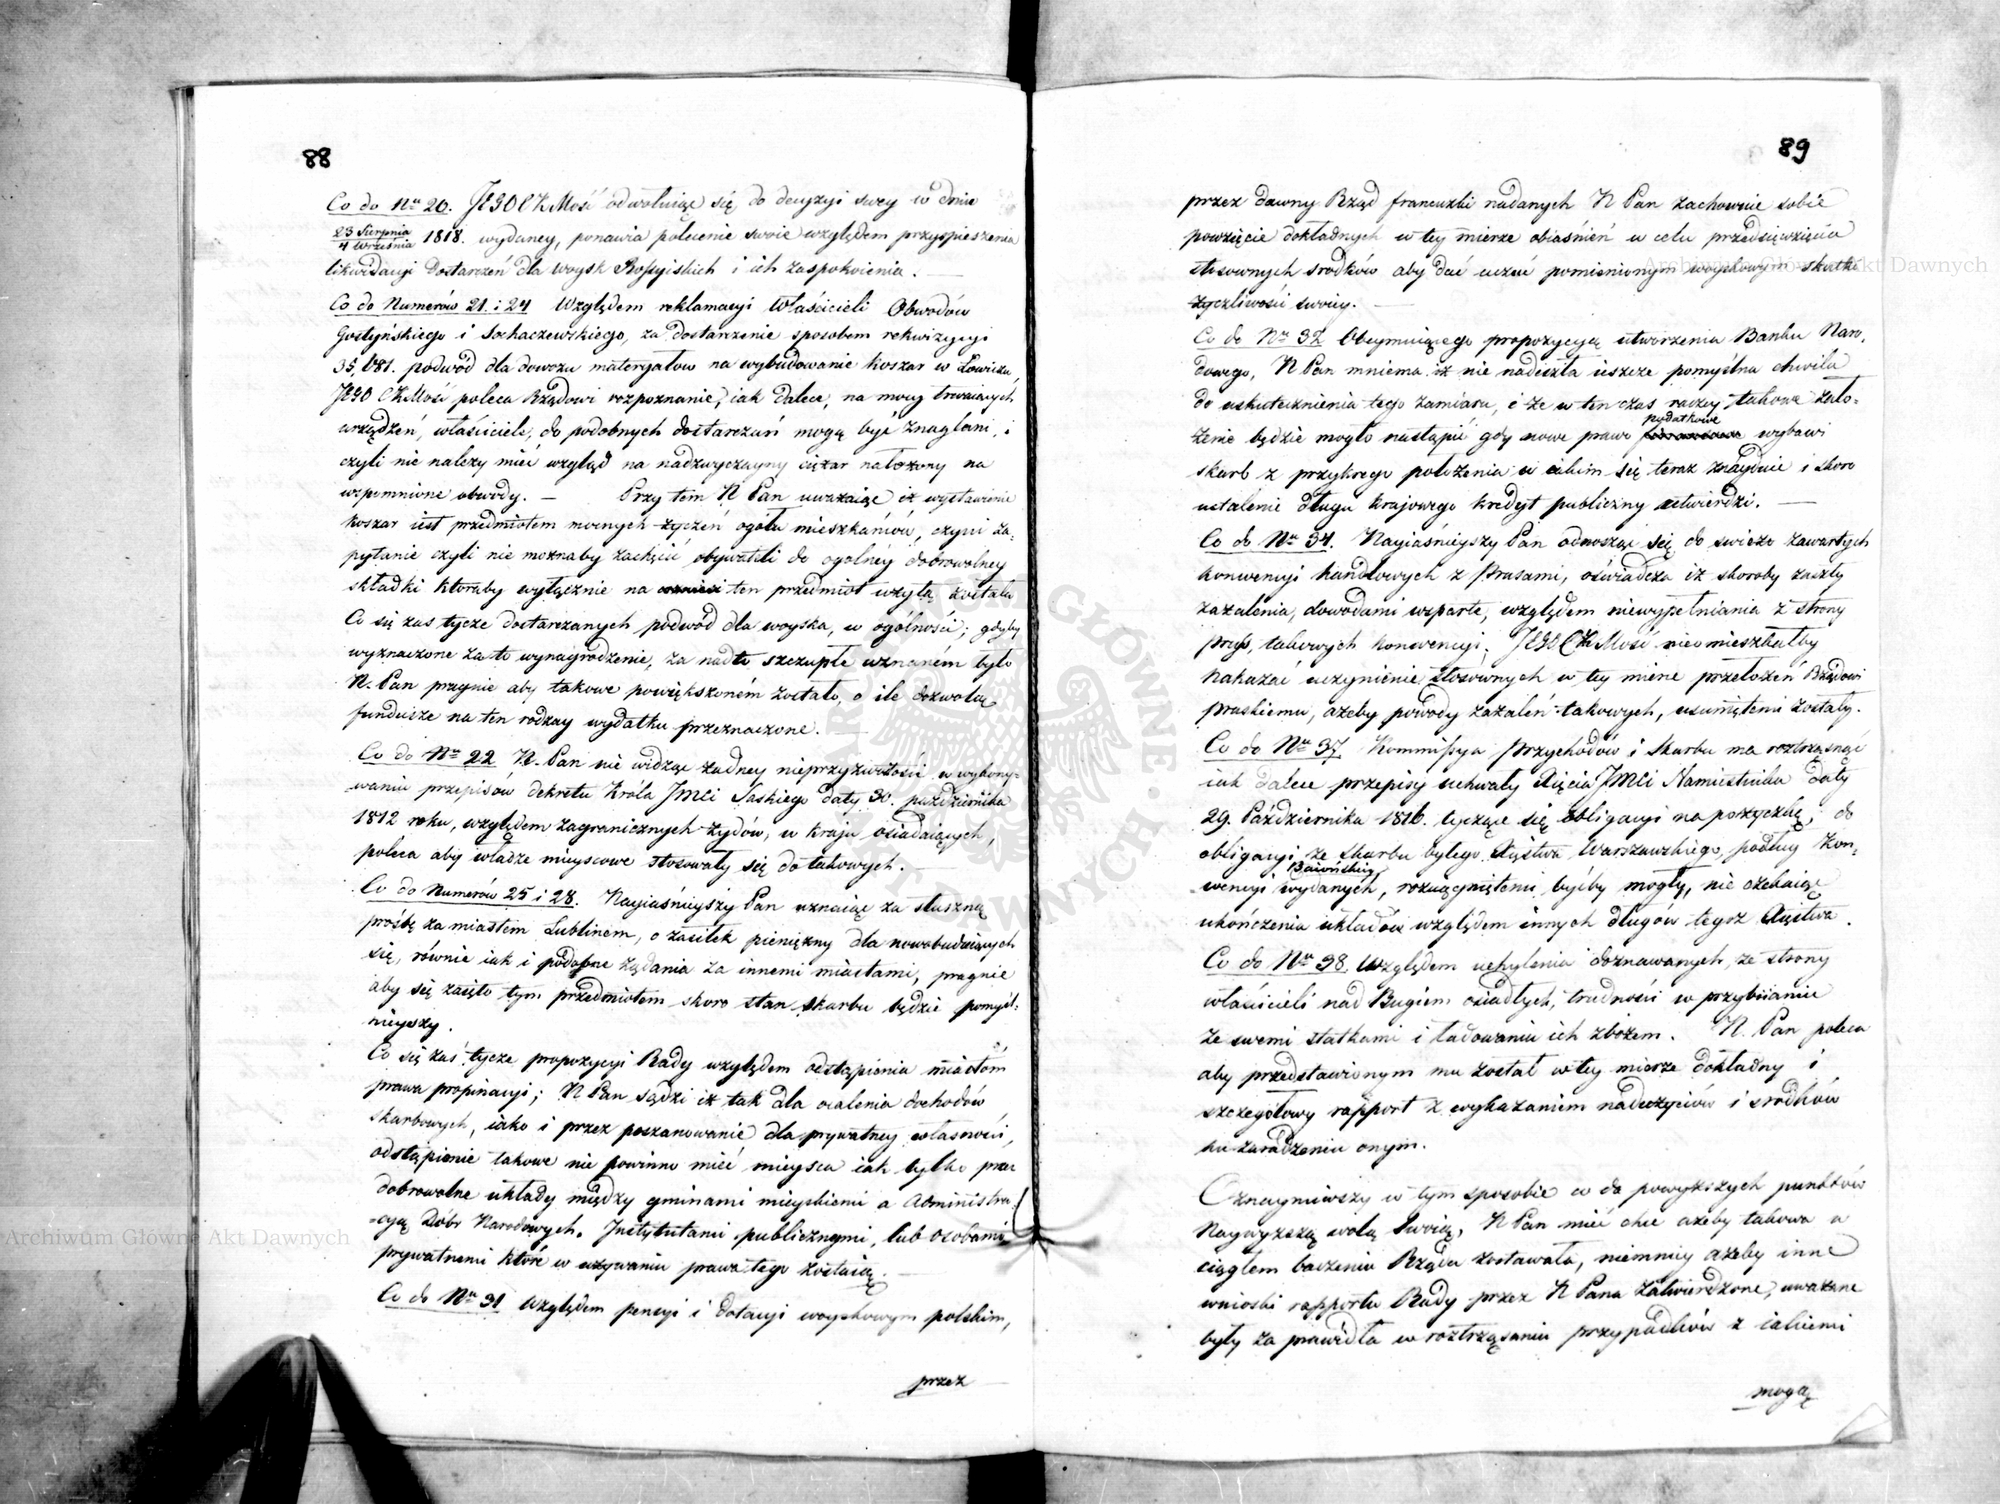 88
Co do Nru 20. JEGO CK Mość odwołuiąc się do decyzyi swey w dniu
23 Sierpnia / 4 Września 1818. wydaney, ponawia polecenie swoie względem przyspieszenia
likwidacyi dostarczeń dla woysk Rossyiskich i ich zaspokoienia. —
Co do Numerów 21. i 24 Względem reklamacyi Właścicieli Obwodów
Gostyńskiego i Sochaczewskiego, za dostarczenie sposobem rekwizycyi
35,681. podwód dla dowozu materyałow na wybudowanie koszar w Łowiczu,
JEGO CK Mość poleca Rządowi rozpoznanie, iak dalece, na mocy trwaiących
urządzeń, właściciele, do podobnych dostarczań mogą być znagleni, i
czyli nie należy mieć wzgląd na nadzwyczayny ciężar nałożony na
wspomnione obwody. — Przy tem N Pan uważaiąc iż wystawienie
koszar iest przedmiotem mocnych życzeń ogółu mieszkańców, czyni za-
pytanie czyli nie możnaby zachęcić obywateli do ogolnéy dobrowolney
składki ktoraby wyłącznie na ten przedmiot użytą została
Co się zas tycze dostarczanych podwód dla woyska, w ogólności; gdyby
wyznaczone za to wynagrodzenie, za nadto szczupłe uznaném było
N. Pan pragnie aby takowe powiększoném zostało, o ile dozwolą
fundusze na ten rodzay wydatku przeznaczone. —
Co do Nru 22 N. Pan nie widząc żadney nieprzyzwoitości w wykony-
waniu przepisów dekretu Króla JMCi Saskiego daty 30. października
1812 roku, względem zagranicznych żydów, w kraju osiadaiących,
poleca aby władze mieyscowe stosowały się do takowych. —
Co do Numerów 25 i 28. Nayiaśnieyszy Pan uznaiąc za słuszną
prośbę za miastem Lublinem, o zasiłek pieniężny dla nowobuduiących
się, równie iak i podobne żądania za innemi miastami, pragnie
aby się zaięto tym przedmiotem skoro stan skarbu będzie pomyśl-
nieyszy.
Co się zaś tycze propozycyi Rady względem odstąpienia miastóm
prawa propinacyi; N Pan sądzi iż tak dla ocalenia dochodów
skarbowych, iako i przez poszanowanie dla prywatney własności,
odstąpienie takowe nie powinno mieć mieysca iak tylko przez
dobrowolne układy między gminami mieyskiemi a Administra-
-cyą Dóbr Narodowych, Instytutami publicznymi, lub osobami
prywatnemi które w używaniu prawa tego zostaią. —
Co do Nru 31 Względem pensyi i dotacyi woyskowym polskim,
przez
89
przez dawny Rząd francuzki nadanych N Pan zachowuie sobie
powzięcie dokładnych w tey mierze obiaśnień w celu przedsięwzięcia
stosownych srodków aby dać uczuć pomienionym woyskowym skutki
życzliwości swoiey. —
Co do Nru 32 Obeymuiącego propozycyą utworzenia Banku Naro-
dowego, N Pan mniema iż nie nadeszła ieszcze pomyślna chwila
do uskutecznienia tego zamiaru, i że w ten czas raczey takowe zało-
żenie będzie mogło nastąpić gdy nowe prawo podatkowe wybawi
skarb z przykrego położenia w iakim się teraz znayduie i skoro
ustalenie długu krajowego kredyt publiczny utwierdzi. —
Co do Nru 34. Nayiaśnieyszy Pan odnosząc się do swieżo zawartych
konwencyi handlowych z Prusami, oświadcza iż skoroby zaszły
zażalenia, dowodami wsparte, względem niewypełniania z strony
Prus, takowych konwencyi; JEGO CK Mość nieomieszkałby
nakazać uczynienie stosownych w tey mierze przełożeń Rządowi
Pruskiemu, ażeby powody zażaleń takowych, usuniętemi zostały.
Co do Nru 37 Kommissya Przychodów i Skarbu ma roztrząsnąć
iak dalece przepisy uchwały Xięcia JMCi Namiestnika daty
29. Października 1816. tyczące się obligacyi na pożyczkę, do
obligacyi, ze skarbu byłego Xięstwa Warszawskiego, podług Kon-
wencyi Baiońskiey wydanych, rozciągniętemi byćby mogły, nie czekaiąc
ukończenia układów względem innych długów tegoż Xięstwa.
Co do Nru 38. Względem uchylenia doznawanych, ze strony
właścicieli nad Bugiem osiadłych, trudności w przybiianiu
ze swemi statkami i ładowaniu ich zbożem. N. Pan poleca
aby przedstawionym mu został w tey mierze dokładny i
szczegółowy rapport z wykazaniem nadużyciów i srodków
ku zaradzeniu onym.
Oznaymiwszy w tym sposobie co do powyższych punktów
Naywyższą wolą Swoią, N Pan mieć chce ażeby takowa w
ciągłem baczeniu Rządu zostawała, niemniey ażeby inne
wnioski rapportu Rady przez N Pana zatwierdzone, uważane
były za prawidła w roztrząsaniu przypadków z iakiemi
mogą